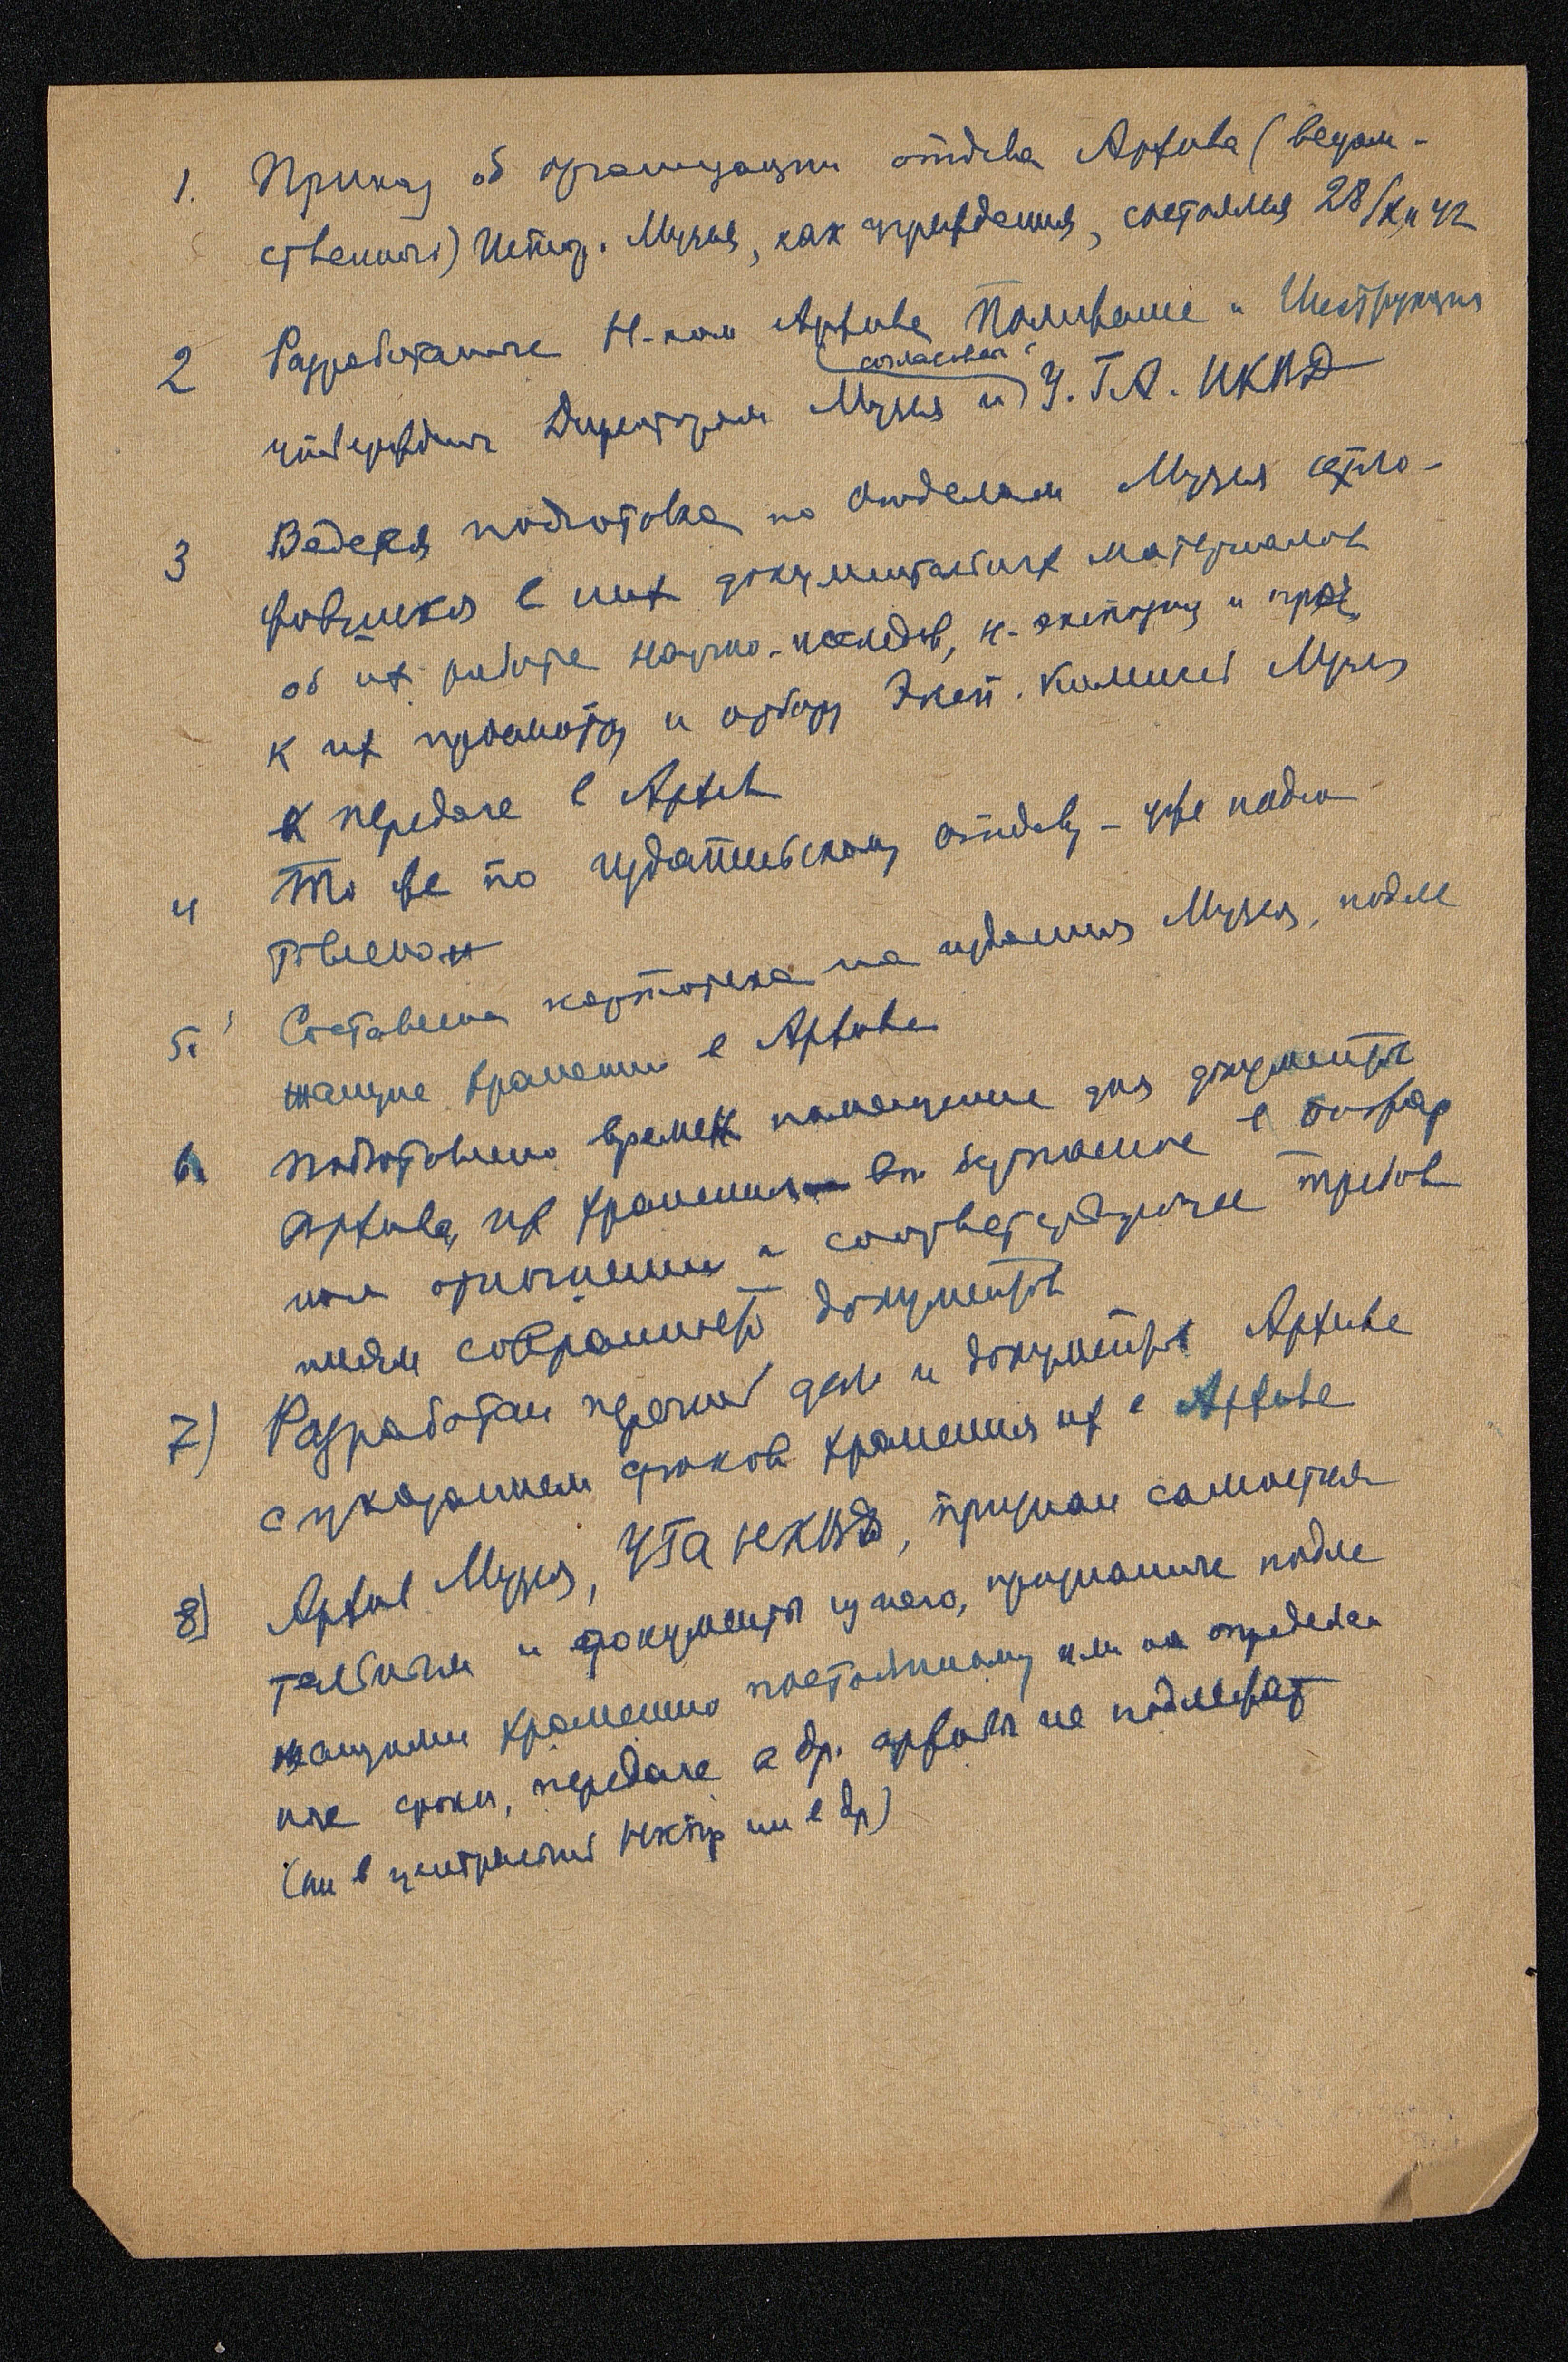 1. Приказ об организации отдела Архива (ведом-
ственного) Истор. Музея, как учреждения, состоялся 28/XII 42
2 Разработанные Н-ком Архива Положение и Инструкция
согласован
утверждены Директором Музея и У.Г.А. НКВД
3 Ведется подготовка по отделам Музея отло-
жившихся в них документальных материалов
об их работе научно-исследов, н-экспозиц и проч
к их просмотру и отбору Эксп. комиссией Музея
к передаче в Архив
4 То же по издательскому отделу – уже подго
товлено
5. Составлена картотека на издания Музея, подле
жащие хранению в Архиве
6. Подготовлено времен помещение для документов
Архива, их хранения в безопасное в пожар
ном отношении и соответствующее требов
ниям сохранности документов
7) Разработан перечень дел и документов Архива
с указанием сроков хранения их в Архиве
8) Архив Музея, УГА НКВД, признан самостоя
тельным и документы из него, признанные подле
жащими хранению постоянному или на определен
ные сроки, передаче в др. архивы не подлежат
(ни в центральный ни в др)